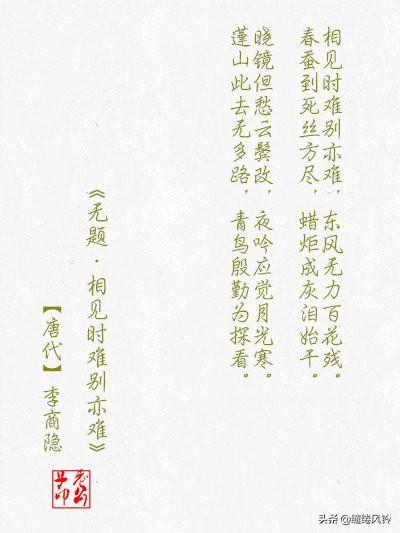 相见时难别亦难，东风无力百花残。
春蚕到死丝方尽，蜡炬成灰泪始干。
晓镜但愁云鬓改，夜吟应觉月光寒。
蓬山此去无多路，青鸟殷勤为探看。
《无题·相见时难别亦难》
【唐代】李商隐
头条@缱绻风铃